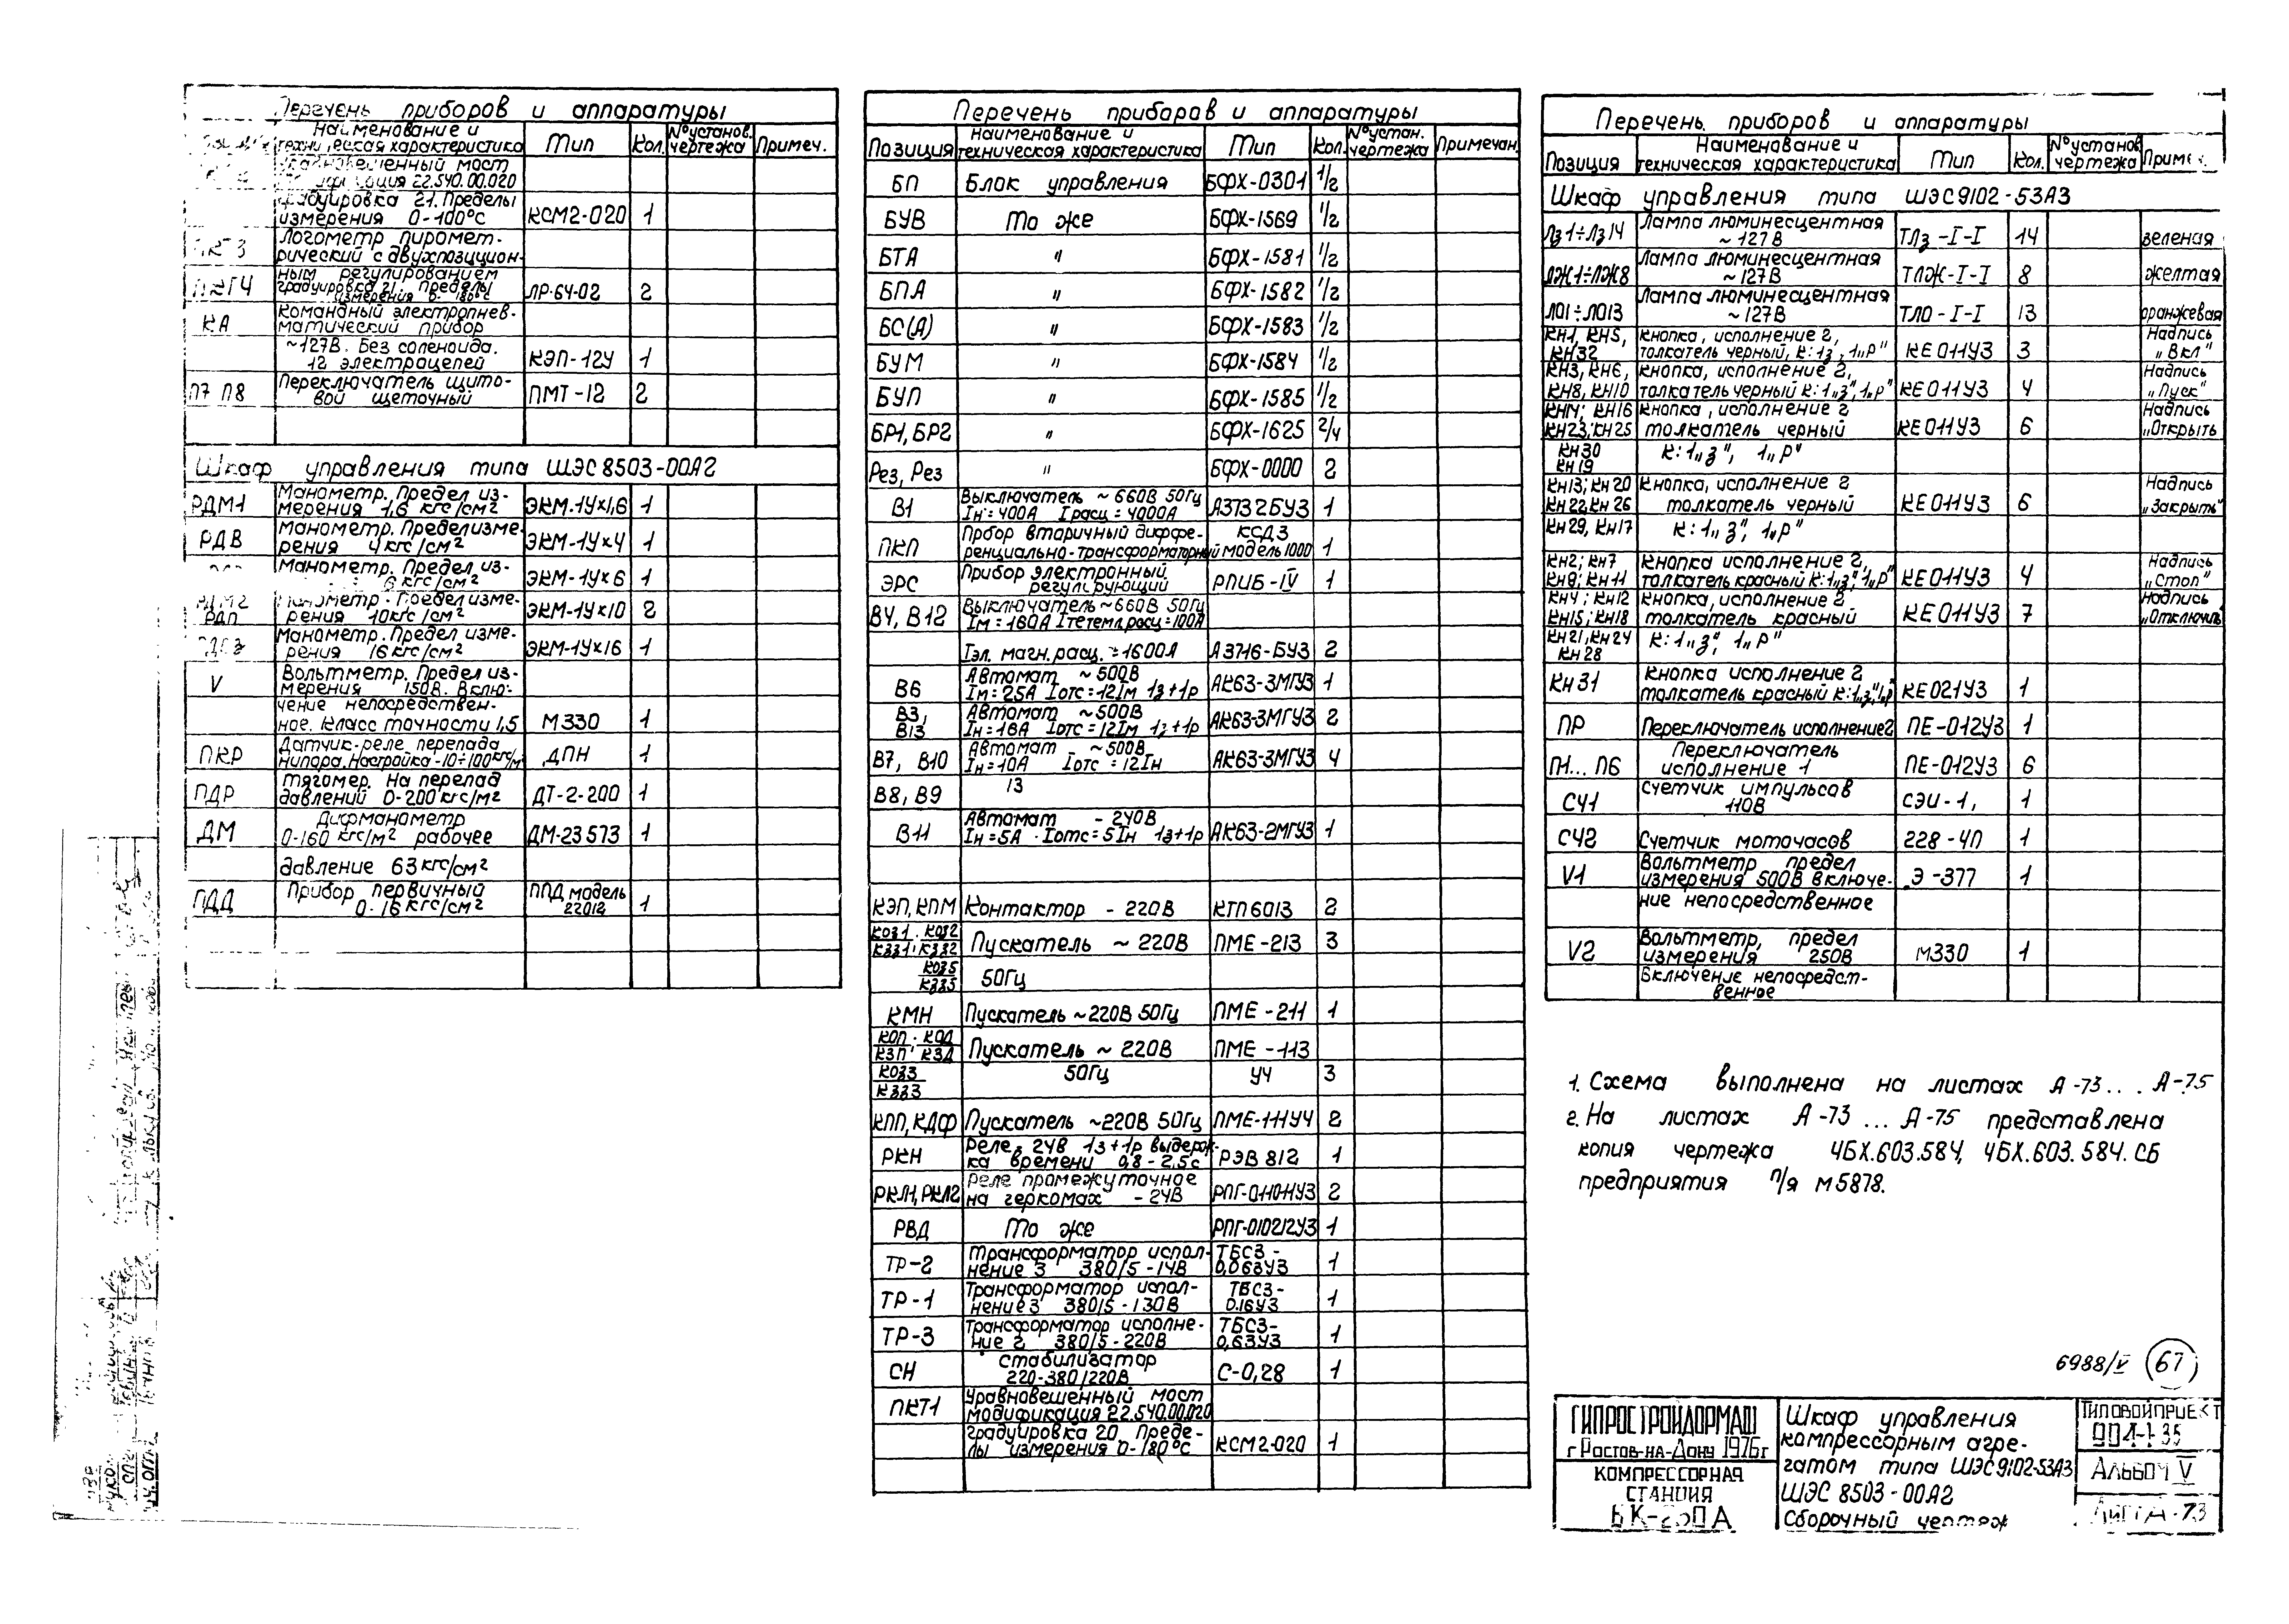 Перечень приборов и аппаратуры
Наименование и техническая характеристика Тип Кол. №установ. чертежа Примеч.
мост
22.540.00.020
градуировка 21. Пределы
измерения 0-100°С КСМ2-020 1
Логометр пиромет-
рический с двухпозицион-
ным регулированием
градуировка 21. пределы
измерения 0-180°С ЛР-64-02 2
КА Командный электропнев-
матический прибор
~127В. Без соленоида.
12 электроцепей КЭП-12У 1
П7 П8 Переключатель щито-
вой щеточный ПМТ-12 2
Шкаф управления типа ШЭС8503-00А2
РДМ1 Манометр. Предел из-
мерения 1,6 кгс/см² ЭКМ-1У×1,6 1
РДВ Манометр. Предел изме-
рения 4кгс/см² ЭКМ-1У×4 1
Манометр. Предел из-
6 кгс/см² ЭКМ-1У×6 1
РДМ2 Манометр. Предел изме-
РДП рения 10кгс/см² ЭКМ-1У×10 2
Манометр. Предел изме-
рения 16кгс/см² ЭКМ-1У×16 1
V Вольтметр. Предел из-
мерения 150В. Вклю-
чение непосредствен-
ное. Класс точности 1,5 М330 1
ПКР Датчик-реле перепада
напора. Настройка-10÷100кгс/м² ДПН 1
ПДР Тягомер. На перепад
давлений 0-200кгс/м² ДТ-2-200 1
ДМ Дифманометр
0-160 кгс/м² рабочее ДМ-23573 1
давление 63кгс/см²
ПДД Прибор первичный
0-16кгс/см² ППД модель 22012 1
Перечень приборов и аппаратуры
Позиция Наименование и техническая характеристика Тип Кол. №устан. чертежа Примечан.
БП Блок управления БФХ-0301 1/2
БУВ То же БФХ-1569 1/2
БТА " БФХ-1581 1/2
БПА " БФХ-1582 1/2
БС(А) " БФХ-1583 1/2
БУМ " БФХ-1584 1/2
БУП " БФХ-1585 1/2
БР1, БР2 " БФХ-1625 2/4
Рез, Рез " БФХ-0000 2
В1 Выключатель ~660В 50Гц
Iн=400А Iрасц=4000А А3732БУ3 1
ПКП Прбор вторичный диффе-
ренциально-трансформаторный КСД3 модель 1000 1
ЭРС Прибор электронный
регулрующий РПИБ-IV 1
В4, В12 Выключатель ~660В 50Гц
Iм=160А Iтетемл.расц=100А
Iэл. магн. расц.=1600А А3716-БУ3 2
В6 Автомат ~500В
Iм=25А Iотс=12Iм 1з+1р АК63-3МГУ3 1
В3, В13 Автомат ~500В
Iн=16А Iотс=12Iм 1з+1р АК63-3МГУ3 2
В7, В10 Автомат ~500В
Iн=10А Iотс=12Iн АК63-3МГУ3 4
В8, В9 13
В11 Автомат -240В
Iн=5А Iотс=5Iн 1з+1р АК63-2МГУ3 1
КЭП, КПМ Контактор -220В КТП6013 2
КОЗ1; КОЗ2
КЗЗ1; КЗЗ2 Пускатель ~220В ПМЕ-213 3
КОЗ5
КЗЗ5 50Гц
КМН Пускатель ~220В 50Гц ПМЕ-211 1
КОП; КОД
КЗП; КЗД Пускатель ~220В ПМЕ-113
КОЗ3
КЗЗ3 50Гц У4 3
КПП, КДФ Пускатель ~220В 50Гц ПМЕ-111У4 2
РКН Реле, 24В 1з+1р выдерж-
ка времени 0,8-2,5с РЭВ 812 1
РКЛ1, РКЛ2 Реле промежуточное
на геркомах -24В РПГ-011011У3 2
РВД То же РПГ-010212У3 1
ТР-2 Трансформатор испол-
нение 3 380/5-14В ТБС3-0,063У3 1
ТР-1 Трансформатор испол-
нение3 380/5-130В ТБС3-0.16У3 1
ТР-3 Трансформатор исполне-
ние 2 380/5-220В ТБС3-0,63У3 1
СН Стабилизатор
220-380/220В С-0,28 1
ПКТ1 Уравновешенный мост
модификация 22.540.00.020
градуировка 20. Преде-
лы измерения 0-180°С КСМ2-020 1
Перечень приборов и аппаратуры
Позиция Наименование и техническая характеристика Тип Кол. №установ чертежа Примеч.
Шкаф управления типа ШЭС9102-53А3
Лз1÷Лз14 Лампа люминесцентная
~127В ТЛз-I-I 14 зеленая
ЛЖ1÷ЛЖ8 Лампа люминесцентная
~127В ТЛЖ-I-I 8 желтая
ЛО1÷ЛО13 Лампа люминесцентная
~127В ТЛО-I-I 13 оранжевая
КН1, КН5, КН32 Кнопка, исполнение 2,
толкатель черный, К:1з, 1„Р" КЕ011У3 3 Надпись „Вкл"
КН3, КН6, КН8, КН10 Кнопка, исполнение 2,
толкатель черный К:1„з", 1„Р" КЕ011У3 4 Надпись „Пуск"
КН14; КН16 Кнопка, исполнение 2
КН23; КН25 толкатель черный КЕ011У3 6 Надпись „Открыть
КН30 КН19 К:1„з", 1„Р"
КН13; КН20 Кнопка, исполнение 2
КН22, КН26 толкатель черный КЕ011У3 6 Надпись „Закрыть"
КН29, КН17 К:1„з", 1„Р"
КН2; КН7 Кнопка исполнение 2,
КН9; КН11 толкатель красный К:1„з", 1„Р" КЕ011У3 4 Надпись „Стоп"
КН4; КН12 Кнопка, исполнение 2
КН15; КН18 толкатель красный КЕ011У3 7 Надпись „Отключить
КН21, КН24 КН28 К:1„з", 1„Р"
КН31 Кнопка исполнение 2
толкатель красный К:1„з", 1„Р" КЕ021У3 1
ПР Переключатель исполнение2 ПЕ-012У3 1
П1... П6 Переключатель
исполнение 1 ПЕ-012У3 6
СЧ1 Счетчик импульсов
110В СЭИ-1, 1
СЧ2 Счетчик моточасов 228-ЧП 1
V1 Вольтметр предел
измерения 500В Включе- Э-377 1
ние непосредственное
V2 Вольтметр, предел
измерения 250В М330 1
Включение непосредст-
венное
1. Схема выполнена на листах А-73... А-75
2. На листах А-73 ... А-75 представлена
копия чертежа 4БХ.603.584, 4БХ.603.584.СБ
предприятия п/я М5878.
6988/V 67
ГИПРОСТРОЙДОРМАШ
г Ростов-на-Дону 1976г
КОМПРЕССОРНАЯ
СТАНЦИЯ
Шкаф управления
компрессорным агре-
гатом типа ШЭС9102-53А3
ШЭС 8503-00А2
Сборочный чертеж
ТИПОВОЙ ПРОЕКТ
904-1-35
Альбом V
Лист А-73